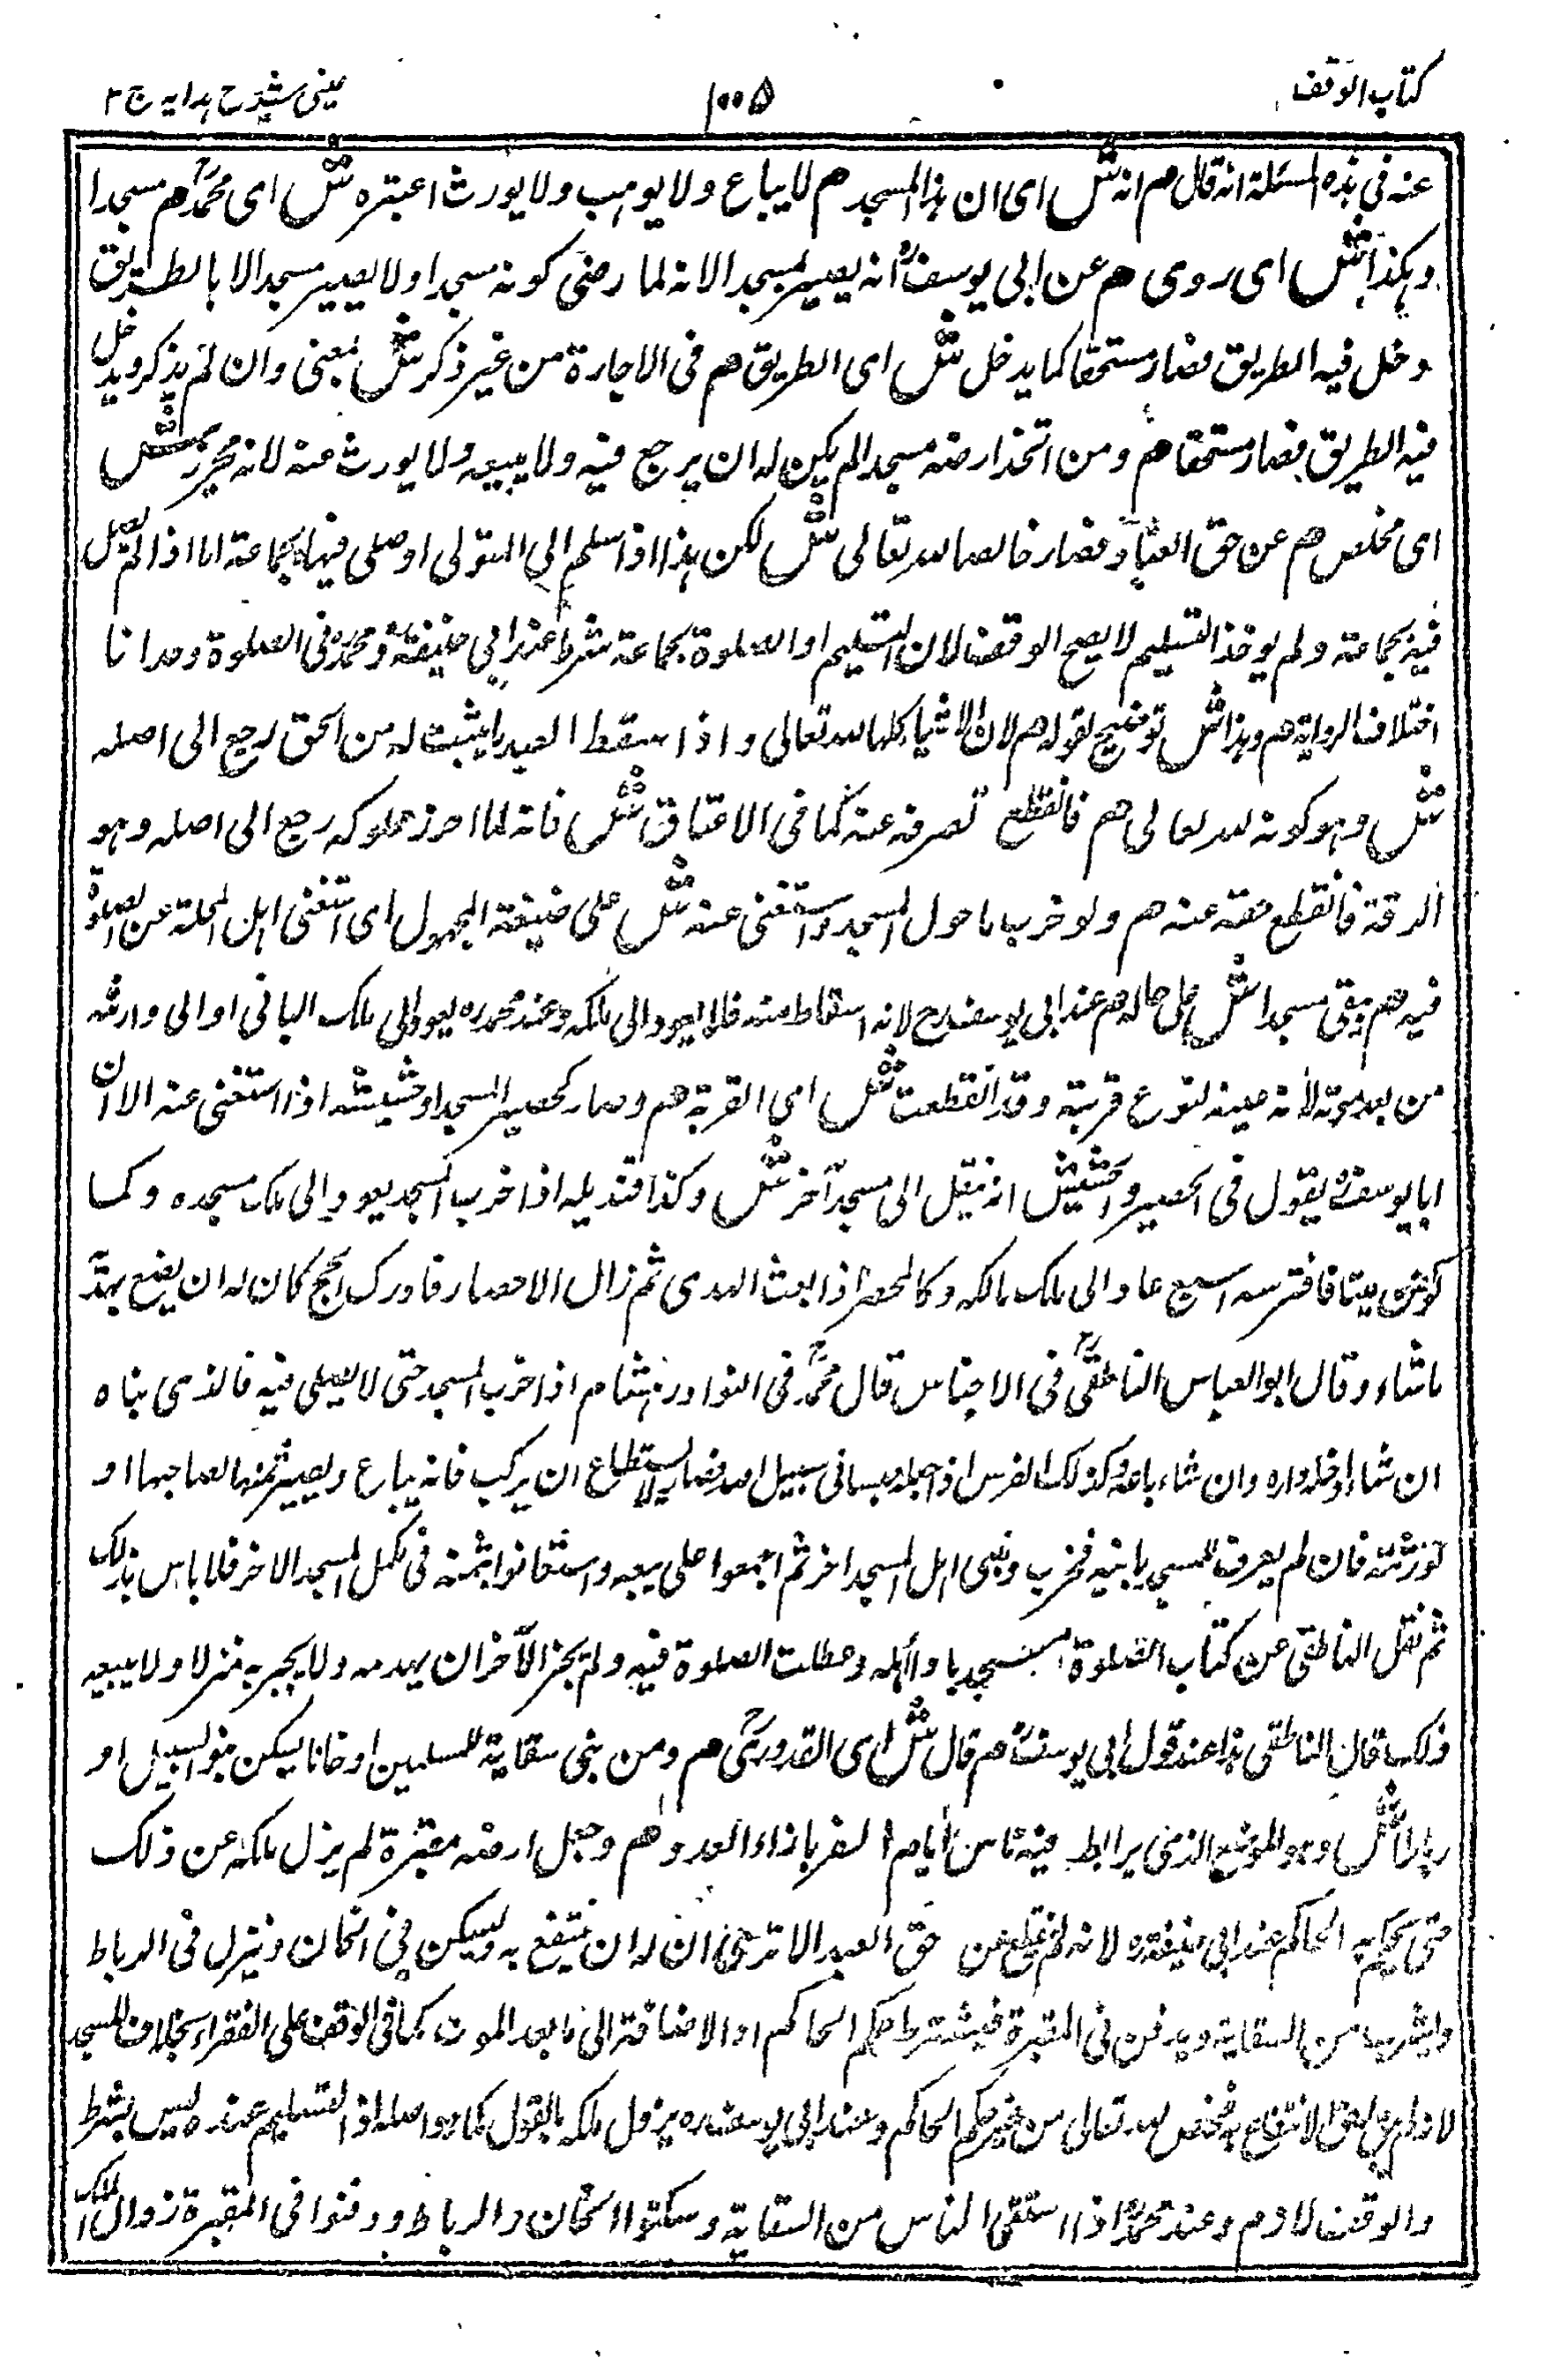 كتاب الوقف
١٠٠٥
عینی شرح ہدایہ ج ٢
عنه فی ہذہ المسئلة انه قال هم انه ش ای ان ہذا المسجد هم لا یباع ولا یوہب ولا یورث اعتبرہ ش ای محمدؒ هم مسجدا
وہکذا ش ای روی هم عن ابی یوسفؒ انه یصیر مسجدا لانه لما رضی کونه مسجدا ولا یصیر مسجدا الا بالطریق
دخل فیه الطریق فصار مستحقا کما یدخل ش ای الطریق هم فی الاجارة من غیر ذکر ش یعنی وان لم یذکر ویدخل
فیه الطریق فصار مستحقا هم ومن اتخذ ارضه مسجدا لم یکن له ان یرجع فیه ولا یبیعه ولا یورث عنه لانه محرز ش
ای مخلص هم عن حق العباد وفصار خالصا لله تعالی ش لکن ہذا اذا سلم الی المتولی او صلی فیها بجماعة اما اذا لم یصل
فیه بجماعة ولم یوخذ التسلیم لا یصح الوقف لان التسلیم او الصلوة بجماعة شرط عند ابی حنیفةؒ ومحمدؒ فی الصلوة وحدانا
اختلاف الروایة هم وہذا ش توضیح لقوله هم لان الاشیاء کلها لله تعالی واذا اسقط العبد ما یثبت له من الحق رجع الی اصله
ش وہو کونه لله تعالی هم فانقطع تصرفه عنه کما فی الاعتاق ش فانه لما احرز مملوکه رجع الی اصله وہو
الرقة فانقطع حقه عنه هم ولو خرب ما حول المسجد واستغنی عنه ش علی صیغة المجہول ای استغنی اہل المحلة عن الصلوة
فیه هم یبقی مسجدا ش علی حاله هم عند ابی یوسفؒ لانه اسقاط منه فلا یعود الی ملکه وعند محمدرہ یعود الی ملک البانی او الی وارثه
من بعد موته لانه عینه لنوع قربة وقد انقطعت ش ای القربة هم وصار کحصیر المسجد او حشیشه اذا استغنی عنه الا ان
ابا یوسفؒ یقول فی الحصیر والحشیش انه ینقل الی مسجد آخر ش وکذا قندیله اذا خرب المسجد یعود الی ملک مسجدہ وکما
کفن میتا فافترسه السبع عاد الی ملک مالکه وکالمحصر اذا بعث الهدی ثم زال الاحصار فادرک الحج کان له ان یصنع بهدیه
ما شاء وقال ابو العباس الناطقیؒ فی الاجناس قال محمدؒ فی النوادر ہشام اذا خرب المسجد حتی لا یصلی فیه فالذی بناہ
ان شاء ادخله دارہ وان شاء باعه وکذلک الفرس اذا جعله حبسا فی سبیل الله فصار لا یستطاع ان یرکب فانه یباع ویصیر ثمنها لصاحبها او
لورثته فان لم یعرف للمسجد بانیه فخرب وبنی اہل المسجد آخر ثم اجمعوا علی بیعه واستعانوا بثمنه فی کمل المسجد الآخر فلا باس بذلک
ثم نقل الناطقی عن کتاب الصلوة مسجد باد اہله وعطلت الصلوة فیه ولم یجز لآخر ان یہدمه ولا یجیر به منزلا ولا یبیعه
ذلک قال الناطقی ہذا عند قول ابی یوسفؒ هم قال ش ای القدوریؒ هم ومن بنی سقایة للمسلمین او خانا یسکن بنو السبیل او
رباطا ش وہو الموضع الذی یرابط فیه ناس ایام السفر بازاء العدو هم وجعل ارضه مقبرة لم یزل ملکه عن ذلک
حتی یحکم به الحاکم عند ابی حنیفةرہ لانه لم ینقطع عن حق العبد الا تری ان له ان ینتفع به ویسکن فی الخان وینزل فی الرباط
ویشرب من السقایة ویدفن فی المقبرة فیشترط حکم الحاکم او الاضافة الی ما بعد الموت کما فی الوقف علی الفقراء بخلاف المسجد
لانه لم یبق له حق الانتفاع به فخلص لله تعالی من غیر حکم الحاکم وعند ابی یوسفرہ یزول ملکه بالقول کما ہو اصله اذ التسلیم عندہ لیس بشرط
والوقف لازم وعند محمدؒ اذا استقی الناس من السقایة وسکنوا الخان والرباط ودفنوا فی المقبرة زوال الملک